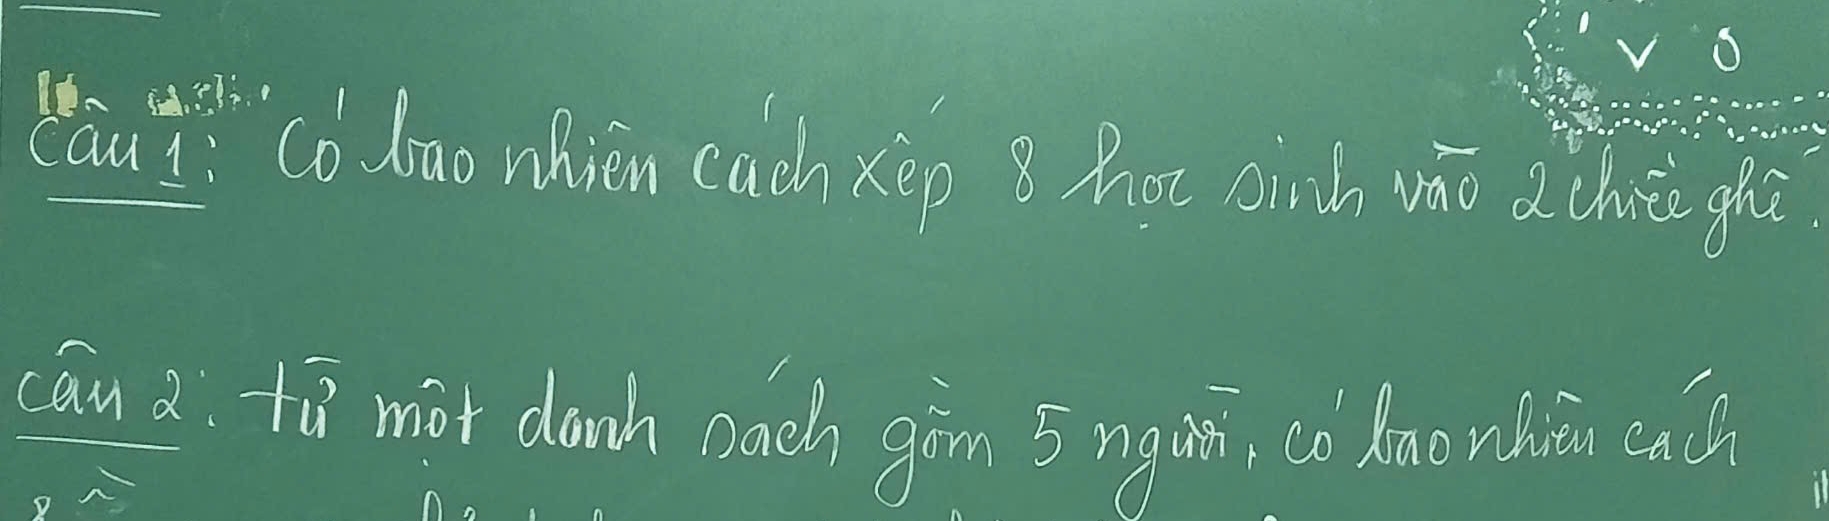 Câu 1: Có bao nhiên cách xếp 8 học sinh vào 2 chiếc ghế.
Câu 2: từ một danh sách gồm 5 người, có bao nhiên cách